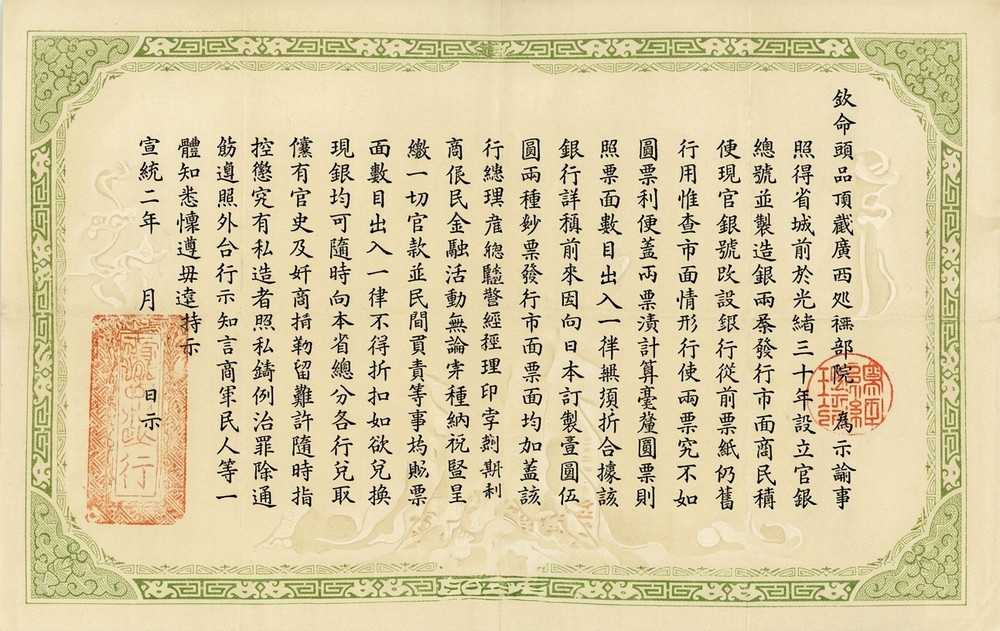 欽命頭品頂戴廣西巡撫部院 為示諭事
照得省城前於光緒三十年設立官銀
總號並製造銀兩票發行市面商民稱
使現官銀號改設銀行從前票紙仍舊
行用惟查市面情形行使兩票究不如
圓票利便蓋兩票漬計算毫釐圓票則
照票面數目出入一律無須折合據該
銀行詳稱前來因向日本訂製壹圓伍
圓兩種鈔票發行市面票面均加蓋該
行總理 經理印字 利
商 民金融活動無論 種納 暨呈
繳一切官款並民間買賣等事均 票
面數目出入一律不得折扣如欲兌換
現銀均可隨時向本省總分各行兌取
儻有官史及奸商揹勒留難許隨時指
控懲究有私造者照私鑄例治罪除通
飭遵照外台行示知言商軍民人等一
體知悉懷遵毋違持示
宣統二年 月 日示
行